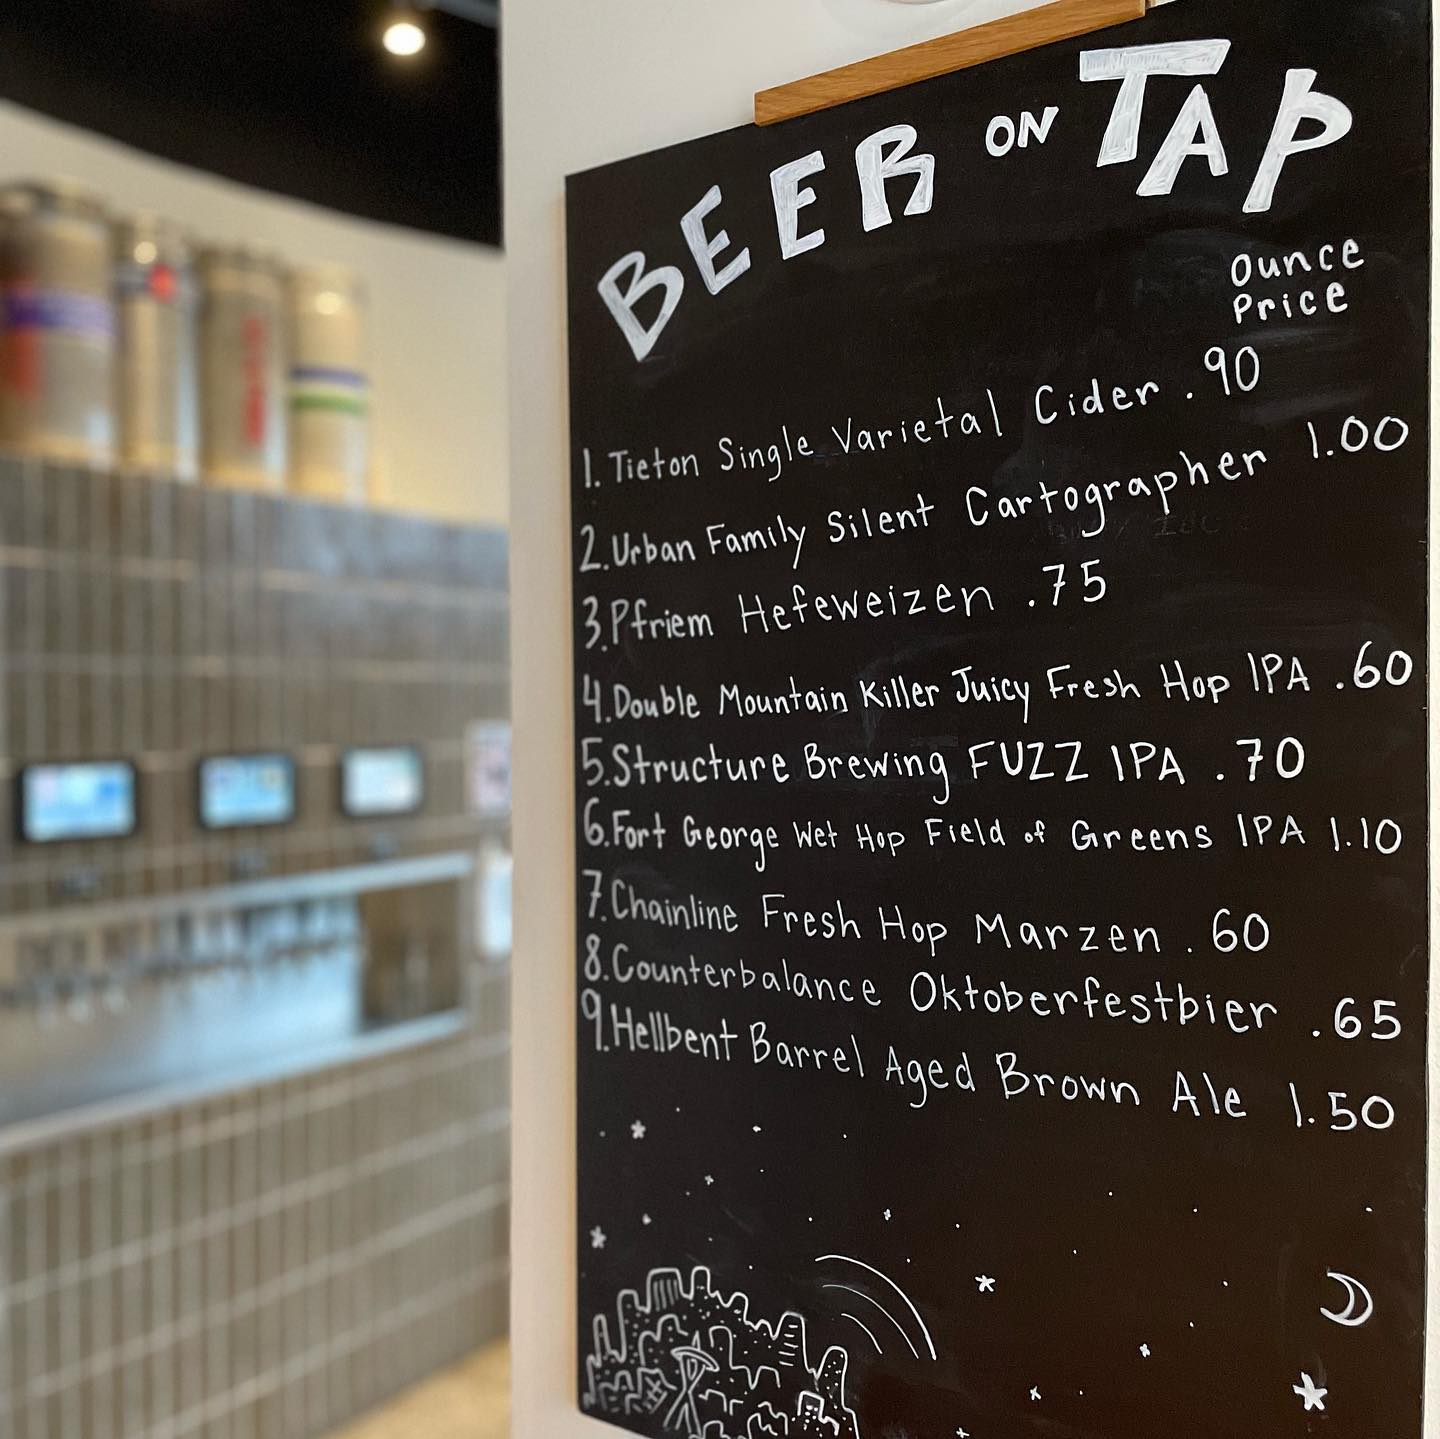 BEER ON TAP
Ounce
Price
1. Tieton Single Varietal Cider .90
2. Urban Family Silent Cartographer 1.00
3. Pfriem Hefeweizen .75
4. Double Mountain Killer Juicy Fresh Hop IPA .60
5. Structure Brewing FUZZ IPA .70
6. Fort George Wet Hop Field of Greens IPA 1.10
7. Chainline Fresh Hop Marzen .60
8. Counterbalance Oktoberfestbier .65
9. Hellbent Barrel Aged Brown Ale 1.50